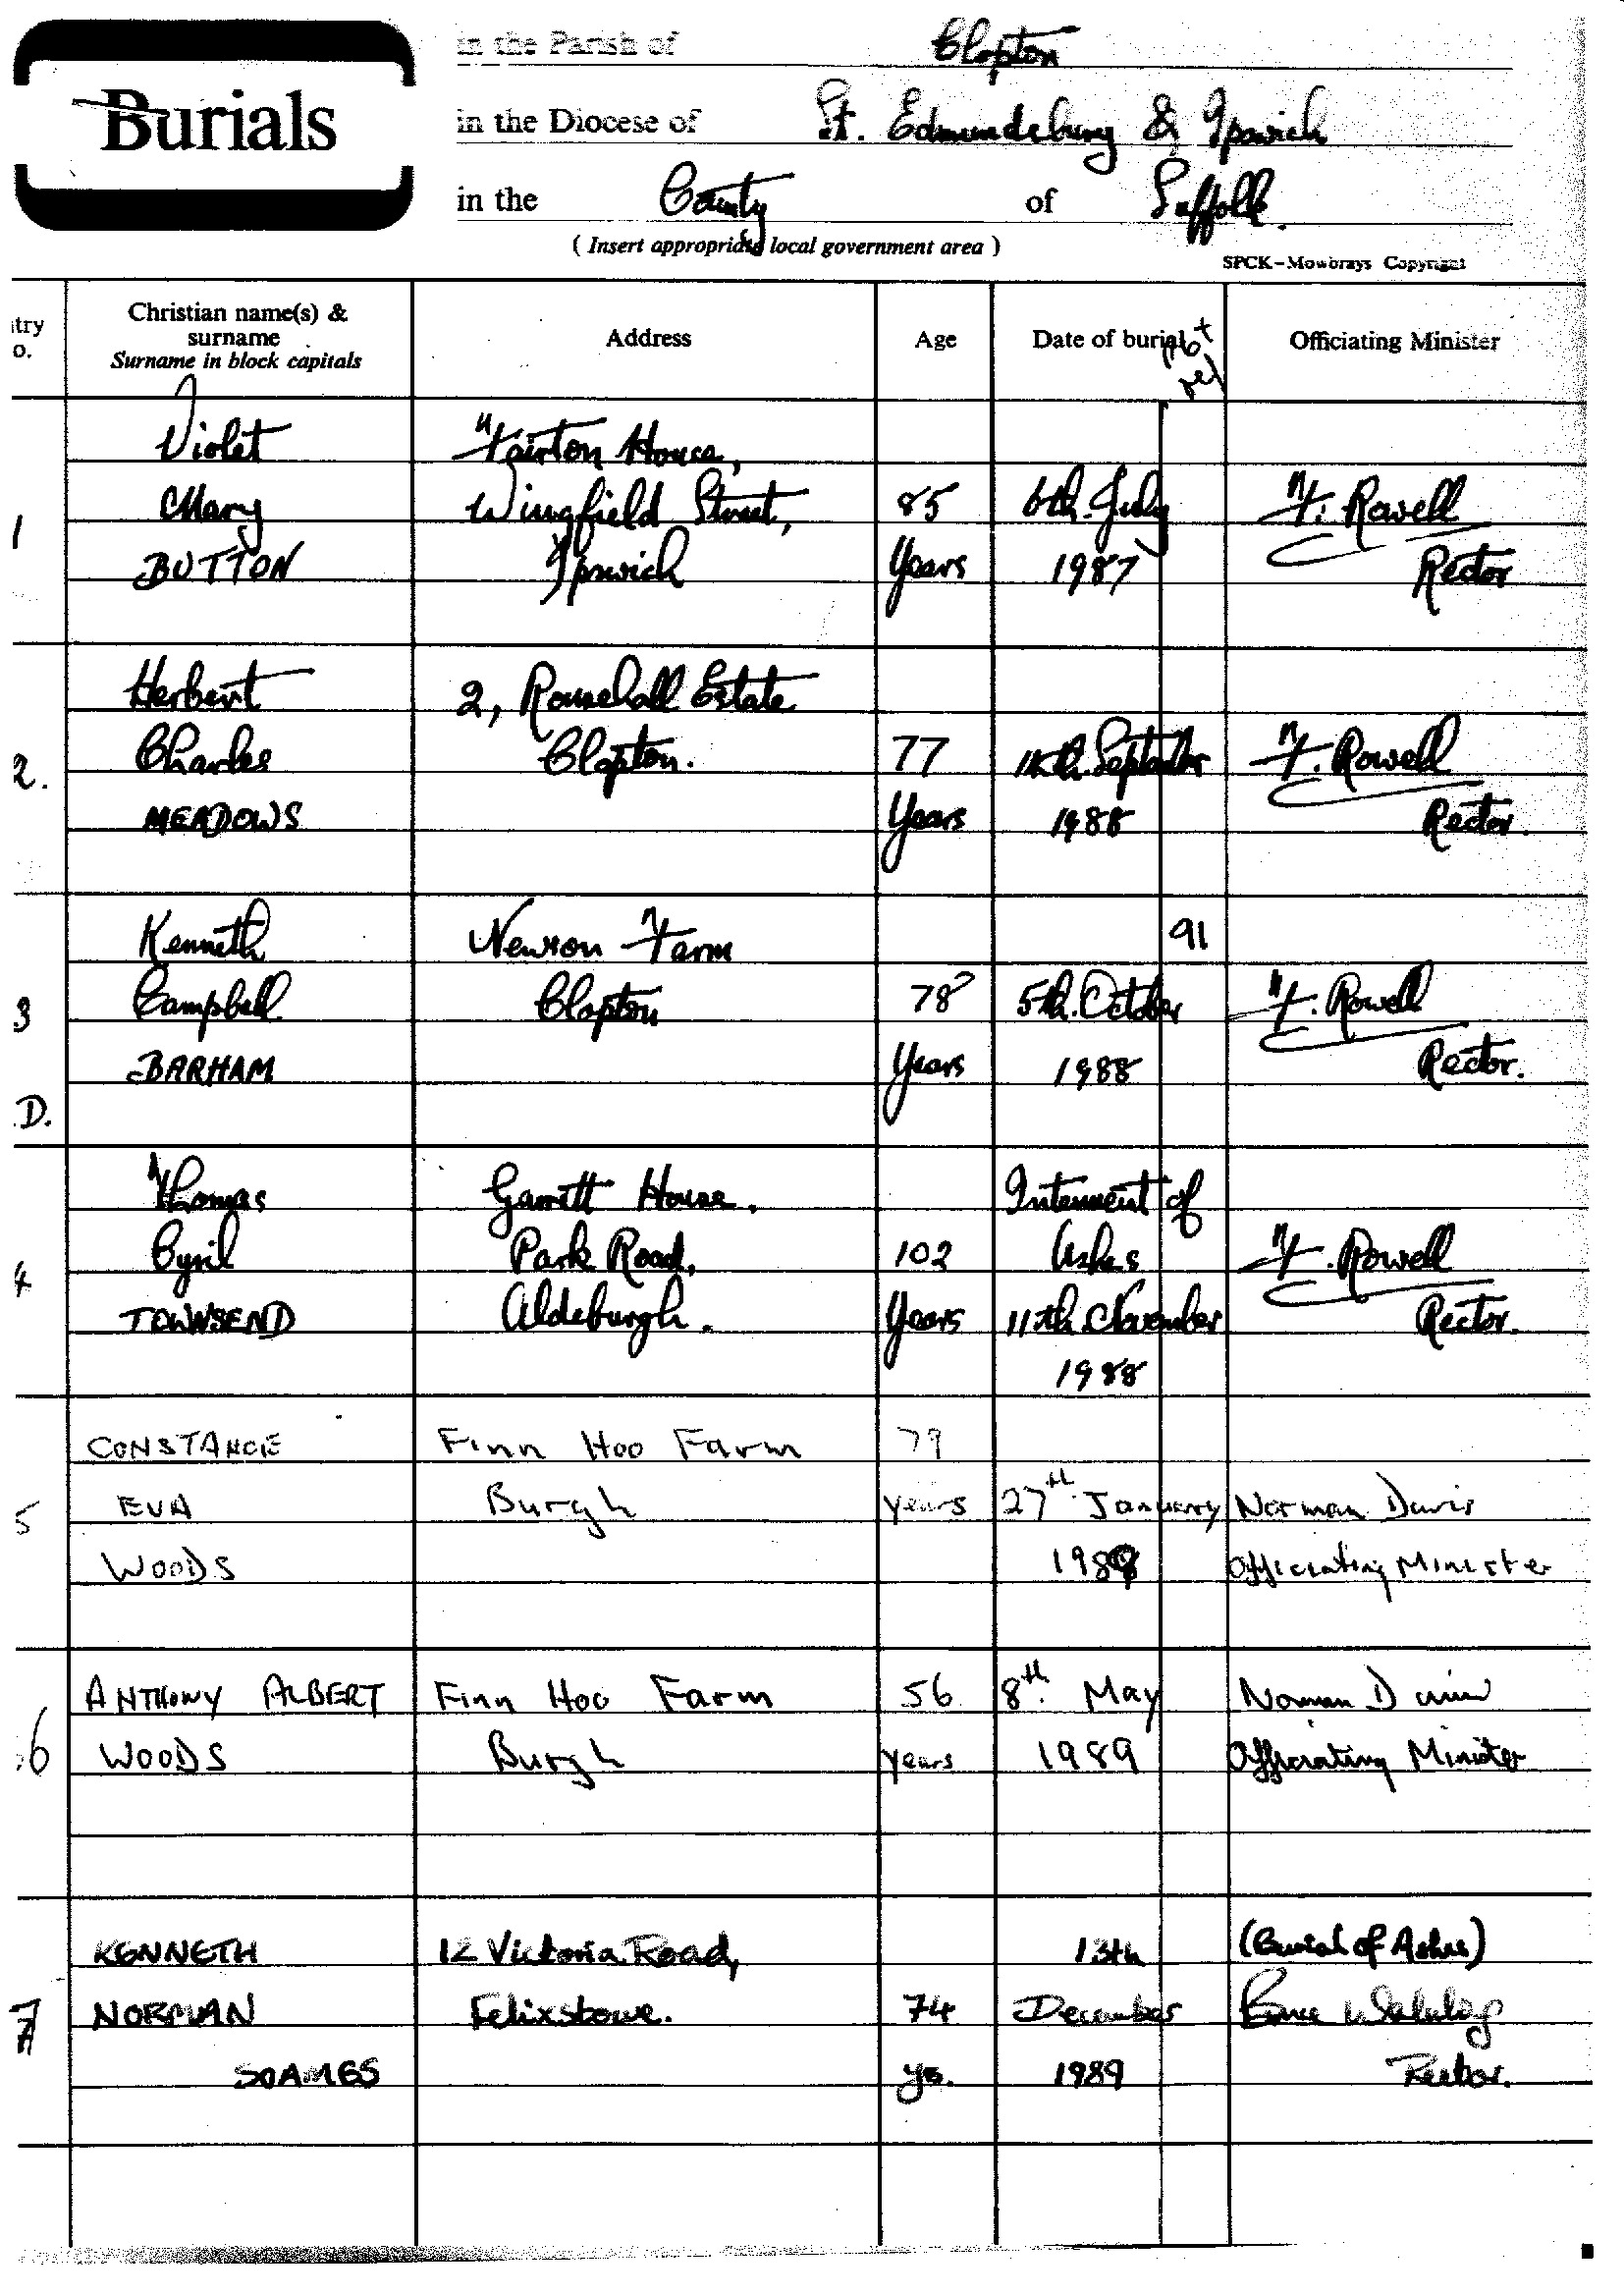 Burials
in the Parish of Clopton
in the Diocese of St. Edmundsbury & Ipswich
in the County of Suffolk.
( Insert appropriate local government area )
SPCK-Mowbrays Copyright
try
o.
Christian name(s) &
surname
Surname in block capitals
Address
Age
Date of burial
Officiating Minister
Violet House,
Mary Wingfield Street, 85 6th. July F. Rowell
1
BUTTON Ipswich Years 1987 Rector
Herbert 2, Rousehall Estate
2. Charles Clopton. 77 September F. Rowell
MEADOWS Years 1988 Rector.
Kenneth Newson Farm 91
3 Campbell Clopton 78 5th. October F. Rowell
BARHAM Years 1988 Rector.
D.
Thomas Garrett House. Interment of
4 Cyril Park Road, 102 Ashes F. Rowell
TOWNSEND Aldeburgh. Years 11th. November Rector.
1988
CONSTANCE Finn Hoo Farm 79
5 EVA Burgh years 27th January Norman Davis
WOODS 1989 Officiating Minister
ANTHONY ALBERT Finn Hoo Farm 56 8th. May Norman Davis
6 WOODS Burgh years 1989 Officiating Minister
KENNETH 12 Victoria Road, 13th (Burial of Ashes)
7 NORMAN Felixstowe. 74 December
SOAMES ys. 1989 Rector.